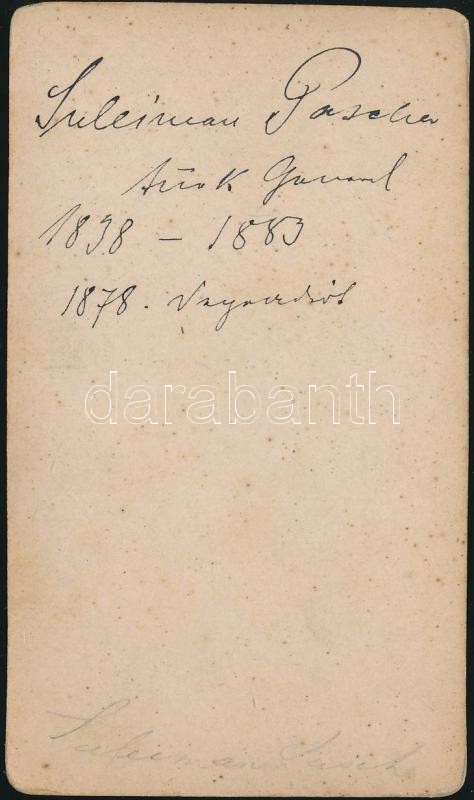 Suleiman Pascha
türk General
1838 – 1883
1878.
darabanth
Suleiman Pascha